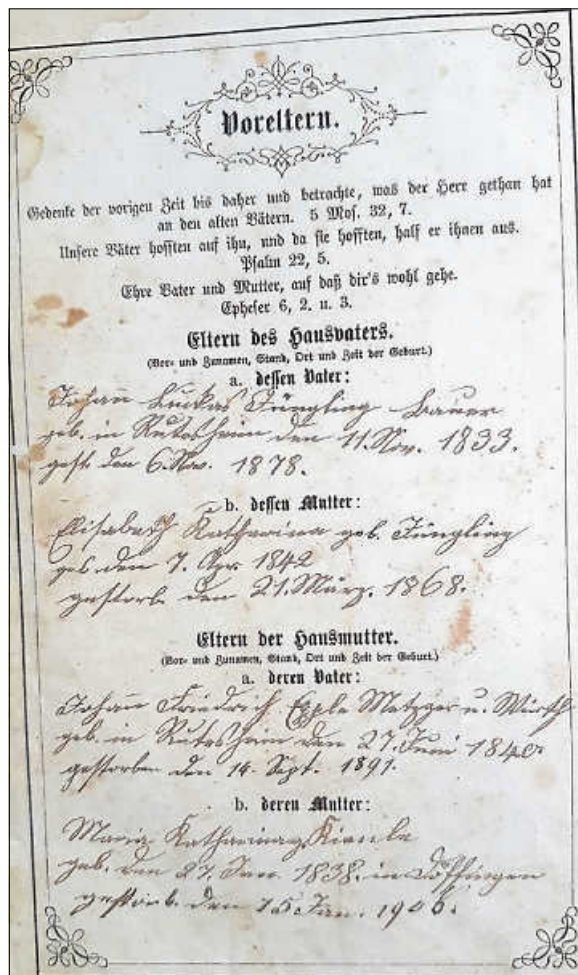 Voreltern.
Gedenke der vorigen Zeit bis daher und betrachte, was der Herr gethan hat
an den alten Vätern. 5 Mos. 32, 7.
Unsere Väter hofften auf ihn, und da sie hofften, half er ihnen aus.
Psalm 22, 5.
Ehre Vater und Mutter, auf daß dir's wohl gehe.
Epheser 6, 2. u. 3.
Eltern des Hausvaters.
(Vor- und Zunamen, Stand, Ort und Zeit der Geburt.)
a. dessen Vater:
Johann Luckas Jüngling Bauer
geb. in Rutesheim den 11. Nov. 1833.
gest. den 6. Nov. 1878.
b. dessen Mutter:
Elisabeth Katharina geb. Jüngling
geb. den 7. Apr. 1842
gestorb. den 21. März. 1868.
Eltern der Hausmutter.
(Vor- und Zunamen, Stand, Ort und Zeit der Geburt.)
a. deren Vater:
Johann Friedrich Epple Metzger u. Wirth
geb. in Rutesheim den 27. Juni 1840
gestorben den 14. Sept. 1891.
b. deren Mutter:
Maria Katharina Kienle
geb. den 27. Jan. 1838. in Döffingen
gestorb. den 15 Jan. 1906.